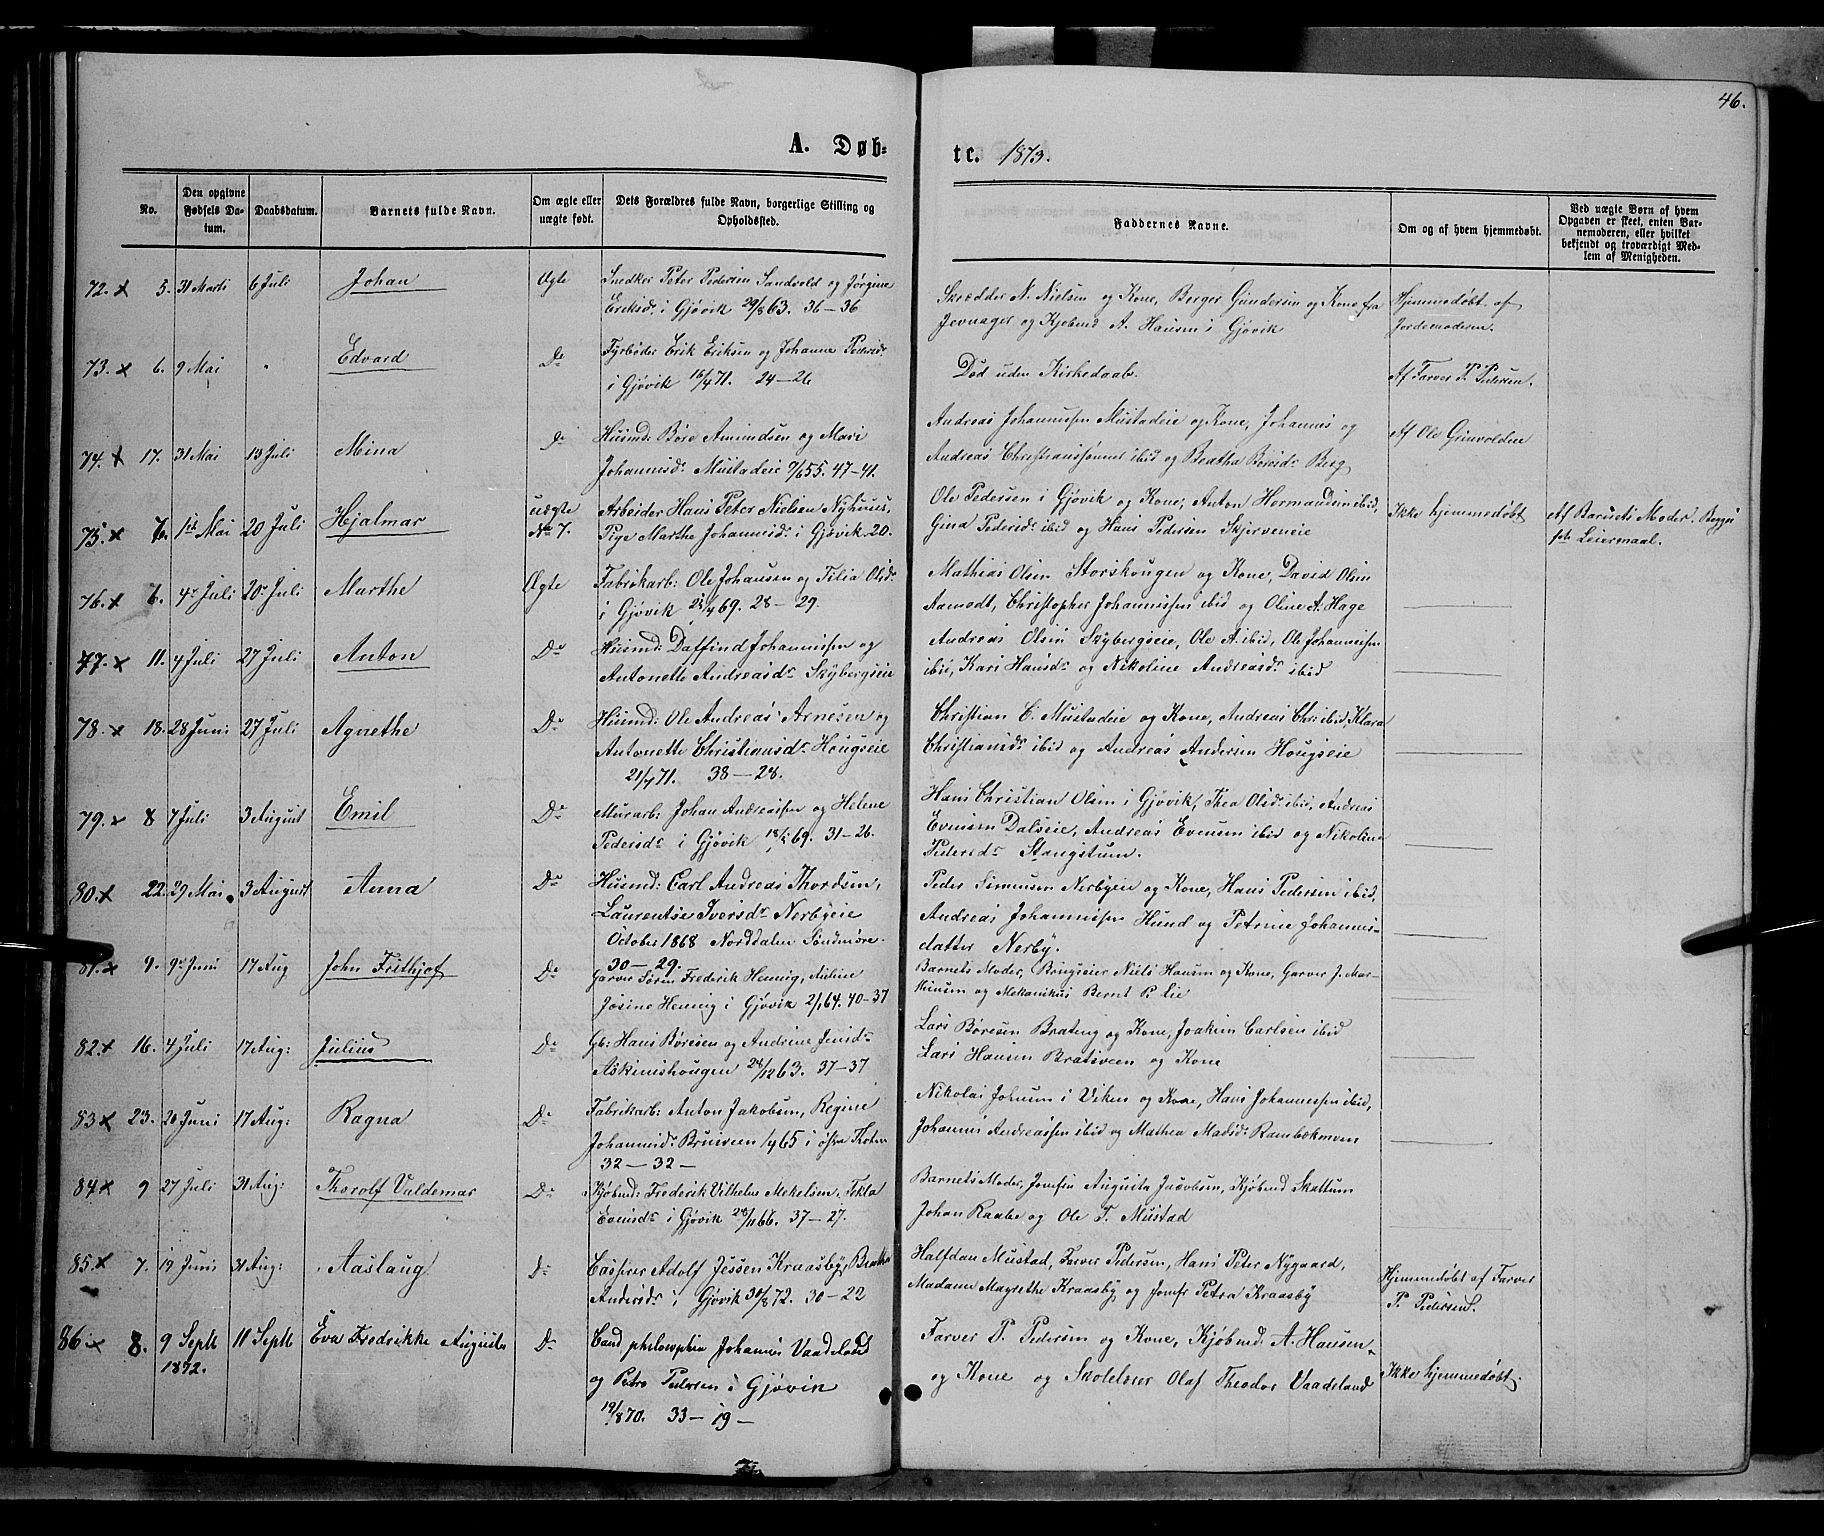 46.
A. Døb= te. 1873.
No.
Den opgivne Fødsels Da-tum.
Daabsdatum.
Barnets fulde Navn.
Om ægte eller uægte født.
Dets Forældres fulde Navn, borgerlige Stilling og Opholdssted.
Faddernes Navne.
Om og af hvem hjemmedøbt.
Ved uægte Børn af hvem Opgaven er skeet, enten Bar-nemoderen, eller hvilket bekjendt og troværdigt Med-lem af Menigheden.
72. x 5. 31 Marts 6 Juli Johan Ægte Snedker Peter Pedersen Sandvold og Jørgine
Eriksd: i Gjøvik 29/8 63. 36-36
Skrædder N. Nielsen og Kone, Berger Gundersen og Kone fra
Jevnager og Kjøbmd A. Hansen i Gjøvik
Hjemmedøbt af
Jordemoderen.
73. x 6. 9 Mai " Edvard Do Fyrbøder Erik Eriksen og Johanne Pedersdr
i Gjøvik 16/4 71. 24-26
Død uden Kirkedaab.
Af Farver P. Pedersen.
74. x 17. 31 Mai 13 Juli Mina Do Husmd: Børe Amundsen og Mari
Johannesdr Mustadeie 7/6 55. 47-41.
Andreas Johannessen Mustadeie og Kone, Johannes og
Andreas Christianssønner ibid og Beatha Børesdr Berg
Af Ole Grinvolden
75. x 7. 1st Mai 20 Juli Hjalmar uægte
No 7. Arbeider Hans Peter Nielsen Nyhuus,
Pige Marthe Johannesdr i Gjøvik 20.
Ole Pedersen i Gjøvik og Kone, Anton Hermandsen ibid,
Gina Pedersdr ibid og Hans Pedersen Skjerveneie
Ikke hjemmedøbt
Af Barnets Moder. Begges
1ste Leiermaal.
76. x 6. 4de Juli 20de Juli Marthe Ægte Fabrikarb: Ole Johansen og Tilia Olsdr
i Gjøvik 69. 28-29.
Mathias Olsen Storskougen og Kone, David Olsen
Aamodt, Christopher Johannessen ibid og Oline A. Hage
77. x 11. 4 Juli 27 Juli Anton Do Husmd: Daffind Johannessen og
Antonette Andreasdr Skybergseie
Andreas Olsen Skybergseie, Ole A. ibid, Ole Johannessen
ibid, Kari Hansdr og Nikoline Andreasdr ibid
78. x 18. 28 Juni 27 Juli Agnethe Do Husmd: Ole Andreas Arnesen og
Antonette Christiansdr Hougseie
21/7 71. 38-28.
Christian C. Mustadeie og Kone, Andreas Chr: ibid, Klara
Christiansdr ibid og Andreas Andersen Hougseie
79. x 8 7 Juli 3 August Emil Do Murarb: Johan Andreassen og Helene
Pedersdr i Gjøvik 69. 31-26.
Hans Christian Olsen i Gjøvik, Thea Olsdr ibid, Andreas
Evensen Dalseie, Andreas Evensen ibid og Nikoline
Pedersdr Stangstuen.
80. x 22. 29 Mai 3 August Anna Do Husmd: Carl Andreas Thordsen,
Laurentse Iversdr Nerbyeie
October 1868 Norddalen Søndmøre.
30-29.
Peder Simensen Nerbyeie og Kone, Hans Pedersen ibid,
Andreas Johannessen Hund og Petrine Johannes-
datter Nerby.
81. x 4. 9de Juni 17 Aug John Frithjof Do Garver Søren Frederik Hennig, Aubine
Josine Hennig i Gjøvik 2/1 64. 40-37
Barnets Moder, Brugseier Niels Hansen og Kone, Garver J. Mar-
thinsen og Mekanikus Bernt P. Lie
82. x 16. 4 Juli 17 Aug: Julius Do Gb: Hans Børesen og Andrine Jensdr
Askimshougen 28/12 63. 37-37
Lars Børesen Brateng og Kone, Joakim Carlsen ibid
Lars Hansen Bratsveen og Kone
83 x 23. 20 Juni 17 Aug: Ragna Do Fabrikarb: Anton Jakobsen, Regine
Johannesdr Bruvsveen 1/4 65 i østre Thoten
32-32-
Nikolai Johnsen i Viken og Kone, Hans Johannessen ibid,
Johannes Andreassen ibid og Mathea Madsdr Rambækmoen
84 x 9 27 Juli 31 Aug: Thorolf Valdemar Do Kjøbmd: Frederik Vilhelm Mikelsen, Tekla
Evensdr i Gjøvik 28/11 66. 37-27.
Barnets Moder, Jomfru Augusta Jacobsen, Kjøbmd Skattum
Johan Raabe og Ole T. Mustad
85. x 7. 19 Juni 31 Aug: Aaslaug Do Casper Adolf Jessen Kraasby, Beathe
Andersdr i Gjøvik 30/8 72. 30-22
Halfdan Mustad, Farver Pedersen, Hans Peter Nygaard,
Madame Magrethe Kraasby og Jomfr Petra Kraasby
Hjemmedøbt af Farver
P. Pedersen.
86 x 8. 9 Septb
1872. 11 Septb Eva Fredrikke Augusta Do Cand philosophia Johannes Vaadeland
og Petra Pedersen i Gjøvik
19/8 70. 33-19-
Farver P. Pedersen og Kone, Kjøbmd. A. Hansen
og Kone og Skolelærer Olaf Theodor Vaadeland
Ikke hjemmedøbt.